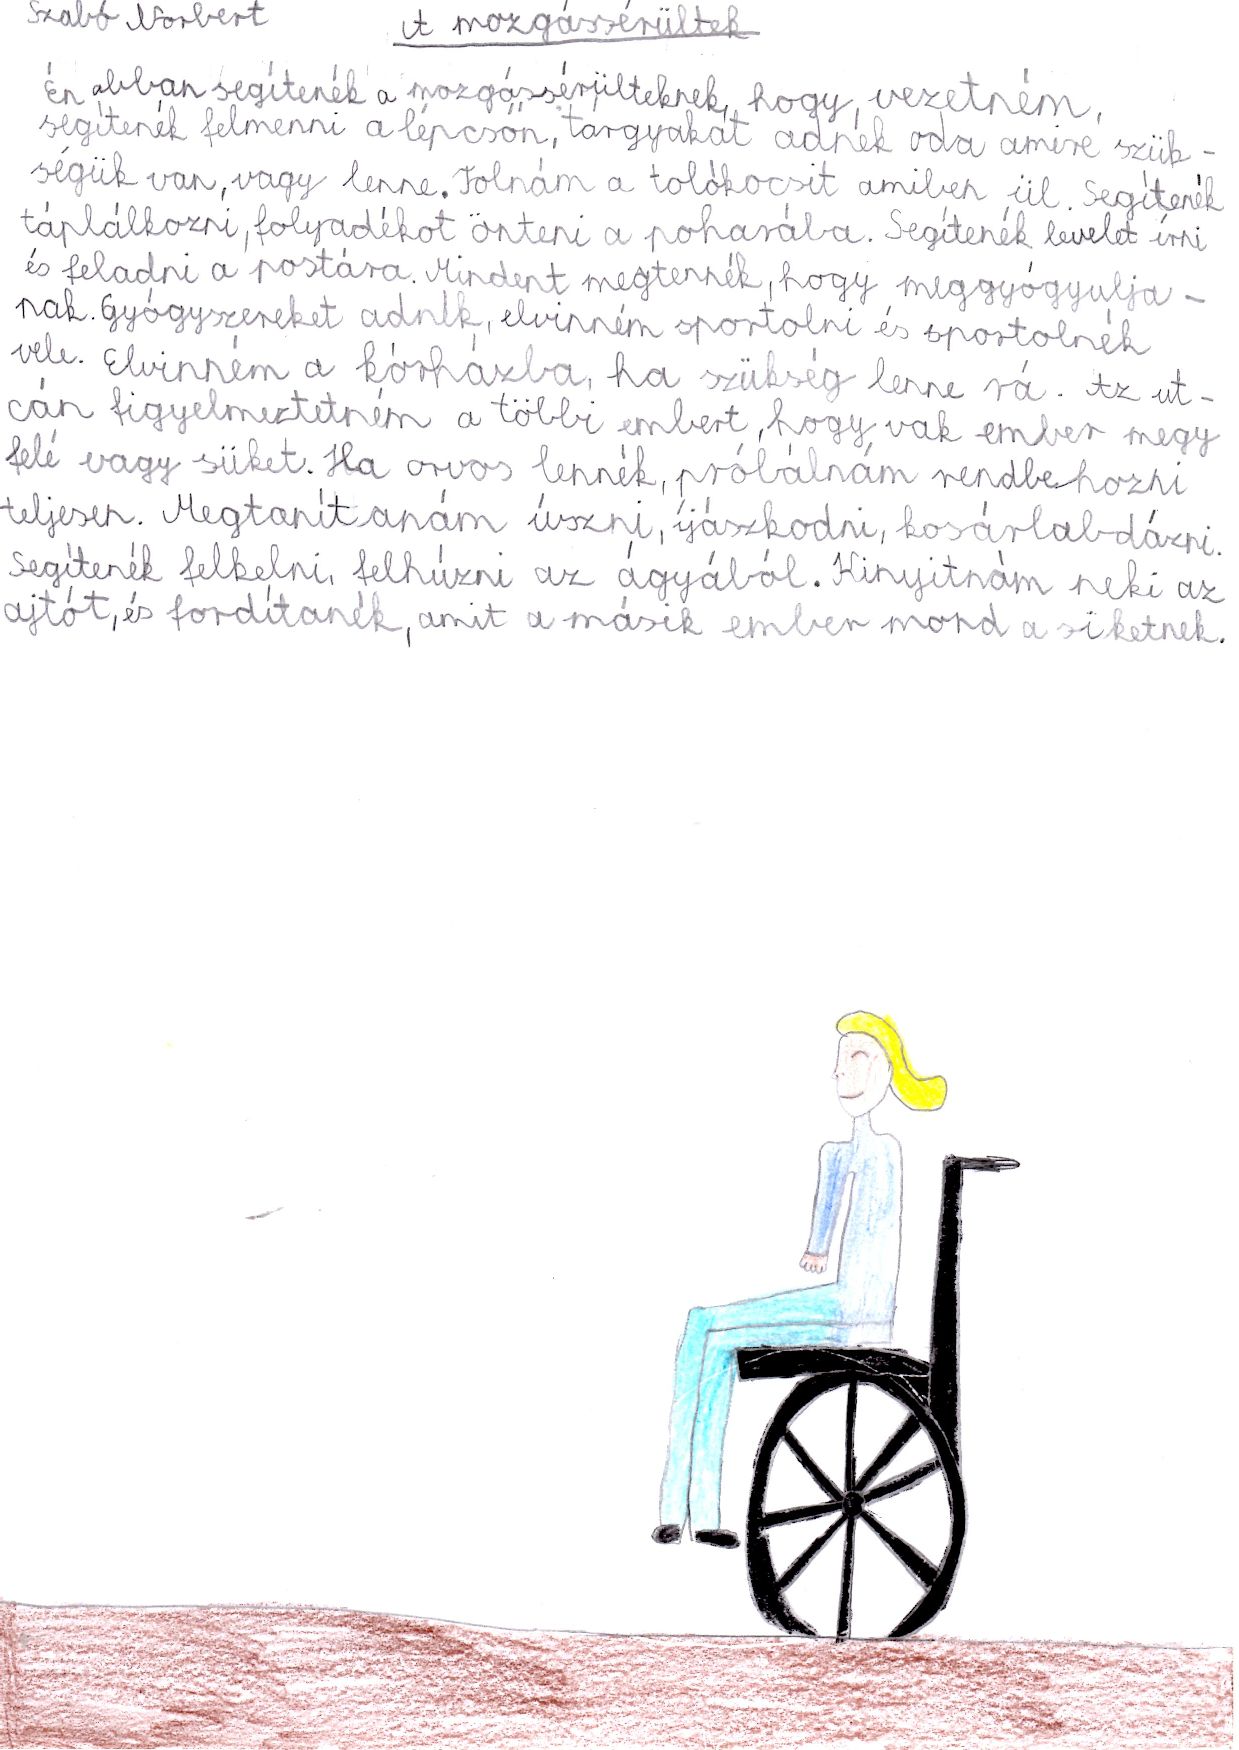 Szabó Norbert
A mozgássérültek
Én abban segítenék a mozgássérülteknek, hogy, vezetném,
segítenék felmenni a lépcsőn, tárgyakat adnék oda amire szük-
ségük van, vagy lenne. Tolnám a tolókocsit amiben ül. Segítenék
táplálkozni, folyadékot önteni a poharába. Segítenék levelet írni
és feladni a postára. Mindent megtennék, hogy meggyógyulja-
nak. Gyógyszereket adnék, elvinném sportolni és sportolnék
vele. Elvinném a kórházba, ha szükség lenne rá. Az ut-
cán figyelmeztetném a többi embert, hogy vak ember megy
felé vagy süket. Ha orvos lennék, próbálnám rendbehozni
teljesen. Megtanítanám úszni, íjászkodni, kosárlabdázni.
Segítenék felkelni, felhúzni az ágyából. Kinyitnám neki az
ajtót, és fordítanék, amit a másik ember mond a siketnek.